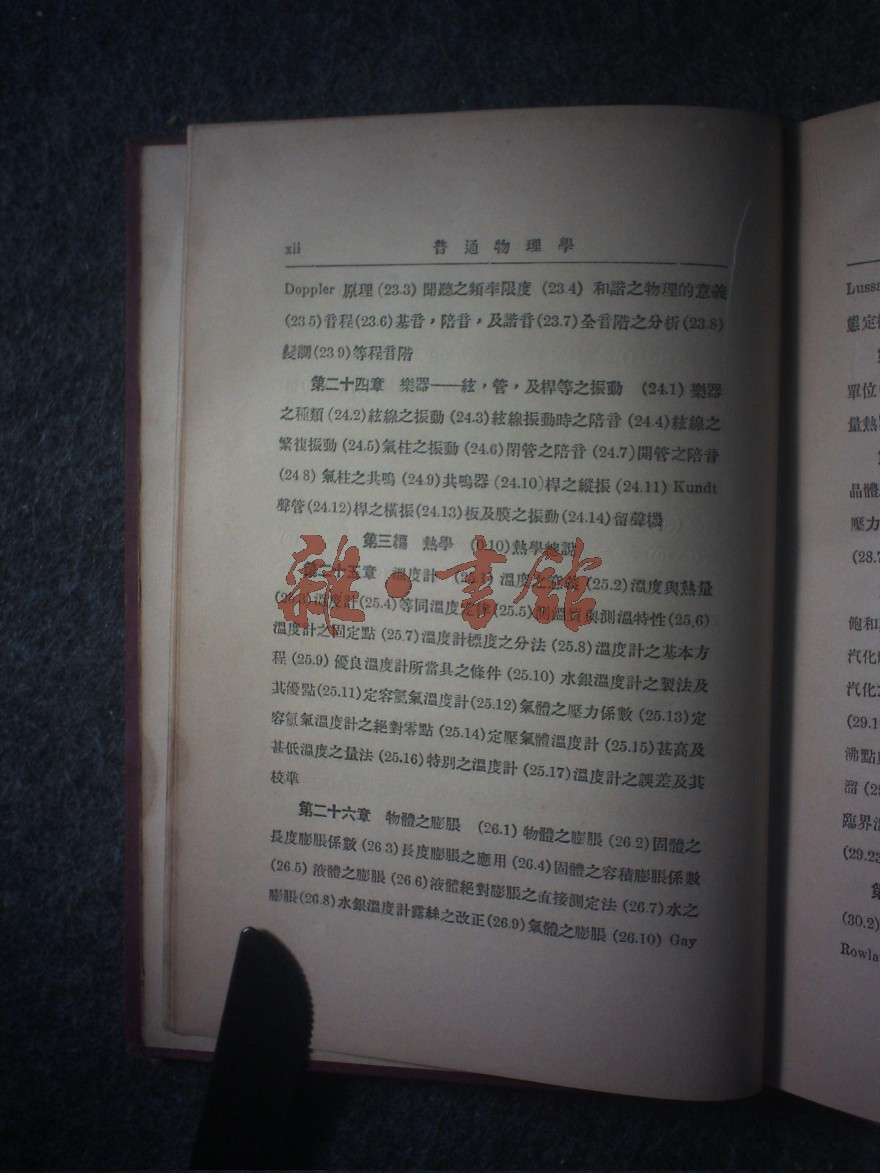 xii 普通物理學
Doppler 原理 (23.3) 聞聽之頻率限度 (23 4) 和諧之物理的意義
(23 5) 音程 (23.6) 基音，陪音，及諧音 (23.7) 全音階之分析 (23.8)
變調 (23 9) 等程音階
第二十四章 樂器——絃，管，及桿等之振動 (24.1) 樂器
之種類 (24.2) 絃線之振動 (24.3) 絃線振動時之陪音 (24.4) 絃線之
繁複振動 (24.5) 氣柱之振動 (24.6) 閉管之陪音 (24.7) 開管之陪音
(24 8) 氣柱之共鳴 (24.9) 共鳴器 (24.10) 桿之縱振 (24.11) Kundt
聲管 (24.12) 桿之橫振 (24.13) 板及膜之振動 (24.14) 留聲機
第三編 熱學 (0.10) 熱學總說
第二十五章 溫度計 (25.1) 溫度之意義 (25.2) 溫度與熱量
(25.3) 溫度計 (25.4) 等同溫度定律 (25.5) 測溫質與測溫特性 (25.6)
溫度計之固定點 (25.7) 溫度計標度之分法 (25.8) 溫度計之基本方
程 (25.9) 優良溫度計所當具之條件 (25.10) 水銀溫度計之製法及
其優點 (25.11) 定容氫氣溫度計 (25.12) 氣體之壓力係數 (25.13) 定
容氫氣溫度計之絕對零點 (25.14) 定壓氣體溫度計 (25.15) 甚高及
甚低溫度之量法 (25.16) 特別之溫度計 (25.17) 溫度計之誤差及其
校準
第二十六章 物體之膨脹 (26.1) 物體之膨脹 (26.2) 固體之
長度膨脹係數 (26 3) 長度膨脹之應用 (26.4) 固體之容積膨脹係數
(26.5) 液體之膨脹 (26.6) 液體絕對膨脹之直接測定法 (26.7) 水之
膨脹 (26.8) 水銀溫度計露絲之改正 (26.9) 氣體之膨脹 (26.10) Gay
雜·書館
單位
量熱
晶體
壓力
(28.7
飽和
汽化
汽化
(29.1
沸點
溜 (2
臨界
(29.23
(30.2)
Rowla